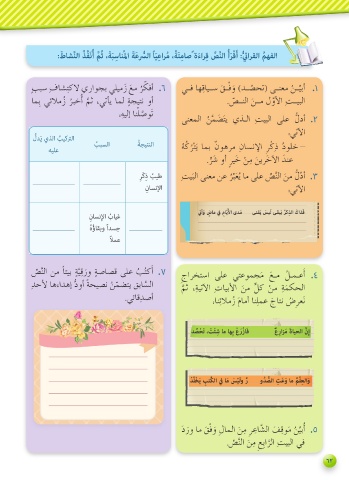 الفهمُ القرائيُّ: أقرَأُ النَّصَّ قِراءَةً صامِتَةً، مُراعِيًا السُّرعَةَ المُناسِبَةَ، ثُمَّ أُنَفِّذُ النَّشاطَ:
١. أُبَيِّنُ معنى (تَحصُد) وَفْقَ سِياقِها في
البيتِ الأوّلِ منَ النَّصِّ.
٢. أدلُّ على البيتِ الذي يتضمَّنُ المعنى
الآتي:
- خلودُ ذِكْرِ الإنسانِ مرهونٌ بما يَتْرُكُهُ
عندَ الآخرينَ مِنْ خيرٍ أو شرٍّ.
٣. أدلُّ منَ النَّصِّ على ما يُعَبِّرُ عن معنى البيتِ
الآتي:
مَدى الأيّامِ في ماضٍ وآتِي
٤. أعمَلُ مَعَ مَجموعَتي على استخراجِ
الحكمَةِ مِنْ كلٍّ منَ الأبياتِ الآتيةِ، ثُمَّ
نَعرِضُ نتاجَ عملِنا أمامَ زُملائِنا.
إنَّ الحياةَ مَزارِعٌ فازْرَعْ بِها ما شِئْتَ تَحْصُدِ
والعِلْمُ ما وَعَتِ الصُّدو رُ وليْسَ ما في الكُتْبِ يَخْلُدْ
٥. أُبَيِّنُ مَوقِفَ الشّاعرِ مِنَ المالِ وَفْقَ ما وردَ
في البيتِ الرّابعِ مِنَ النّصِّ.
٦. أفكِّرُ معَ زَميلي بِجِواري لاكتِشافِ سببٍ
أو نتيجةٍ لما يأتي، ثمَّ أُخبِرُ زُملائي بما
توصَّلنا إليهِ.
النتيجةُ السببُ التركيبُ الذي يَدلُّ
عليه
طيبُ ذِكْرِ
الإنسانِ
غيابُ الإنسانِ
جسداً وبقاؤُهُ
عملاً
٧. أكتُبُ على قصاصةٍ ورقيّةٍ بيتاً من النّصِّ
السّابقِ يتضمّنُ نصيحةً أودُّ إهداءَها لأحدِ
أصدقائي.
٦٣